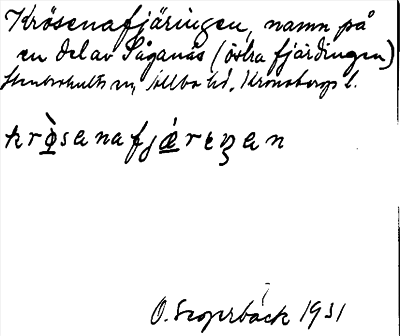 Krösenafjäringen, namn på
en del av Såganäs (östra fjärdingen)
Stenbrohults sn, Allbo hd, Kronobergs l.
O. Skoperbäck 1931